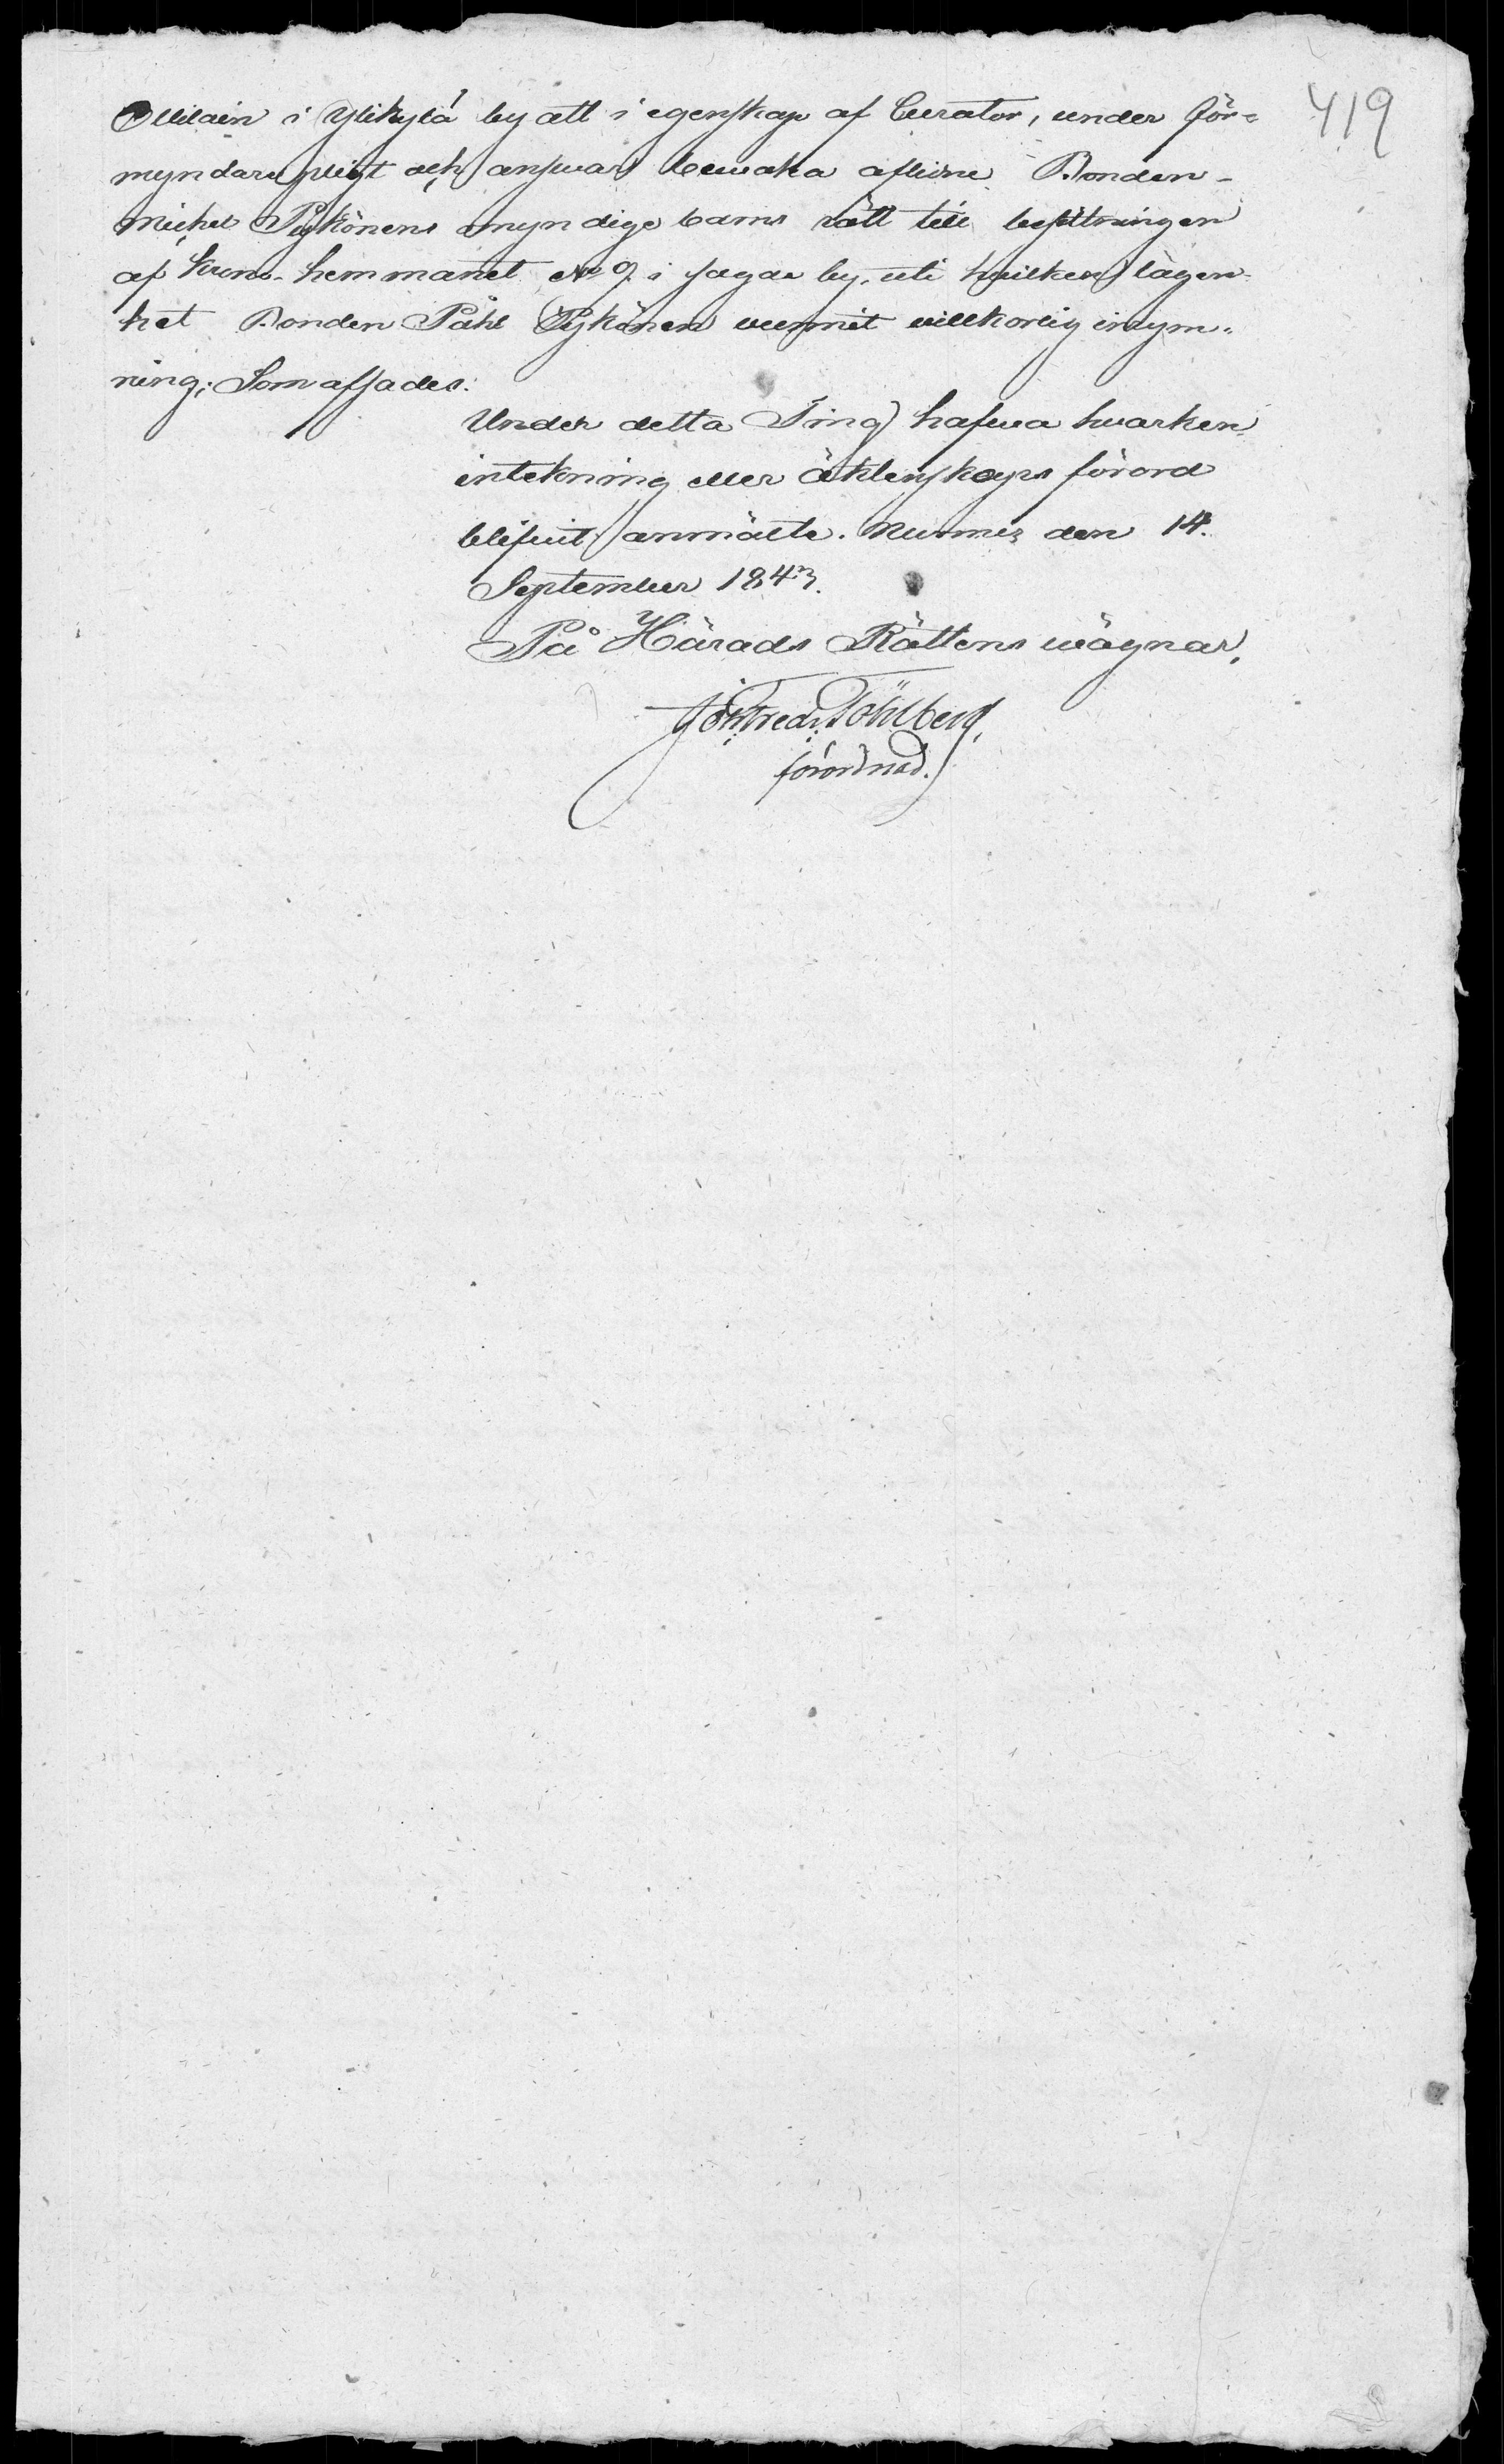 419
Ollilain i Ylikylä by att i egenskap af Curator, under för-
myndare pligt och answar bewaka aflidne Bonden
Michel Pykönens omyndige barns rätt till besittningen
af krono-hemmanet No 9 i sagde by, uti hvilken lägen-
het Bonden Påhl Pykönen wunnit villkorlig inrym-
ning; Som afsades.
Under detta Ting hafwa hwarken
inteckning eller äktenskaps förord
blifwit anmälte. Nurmis den 14.
September 1843.
På Härads Rättens wägnar,
förordnad.